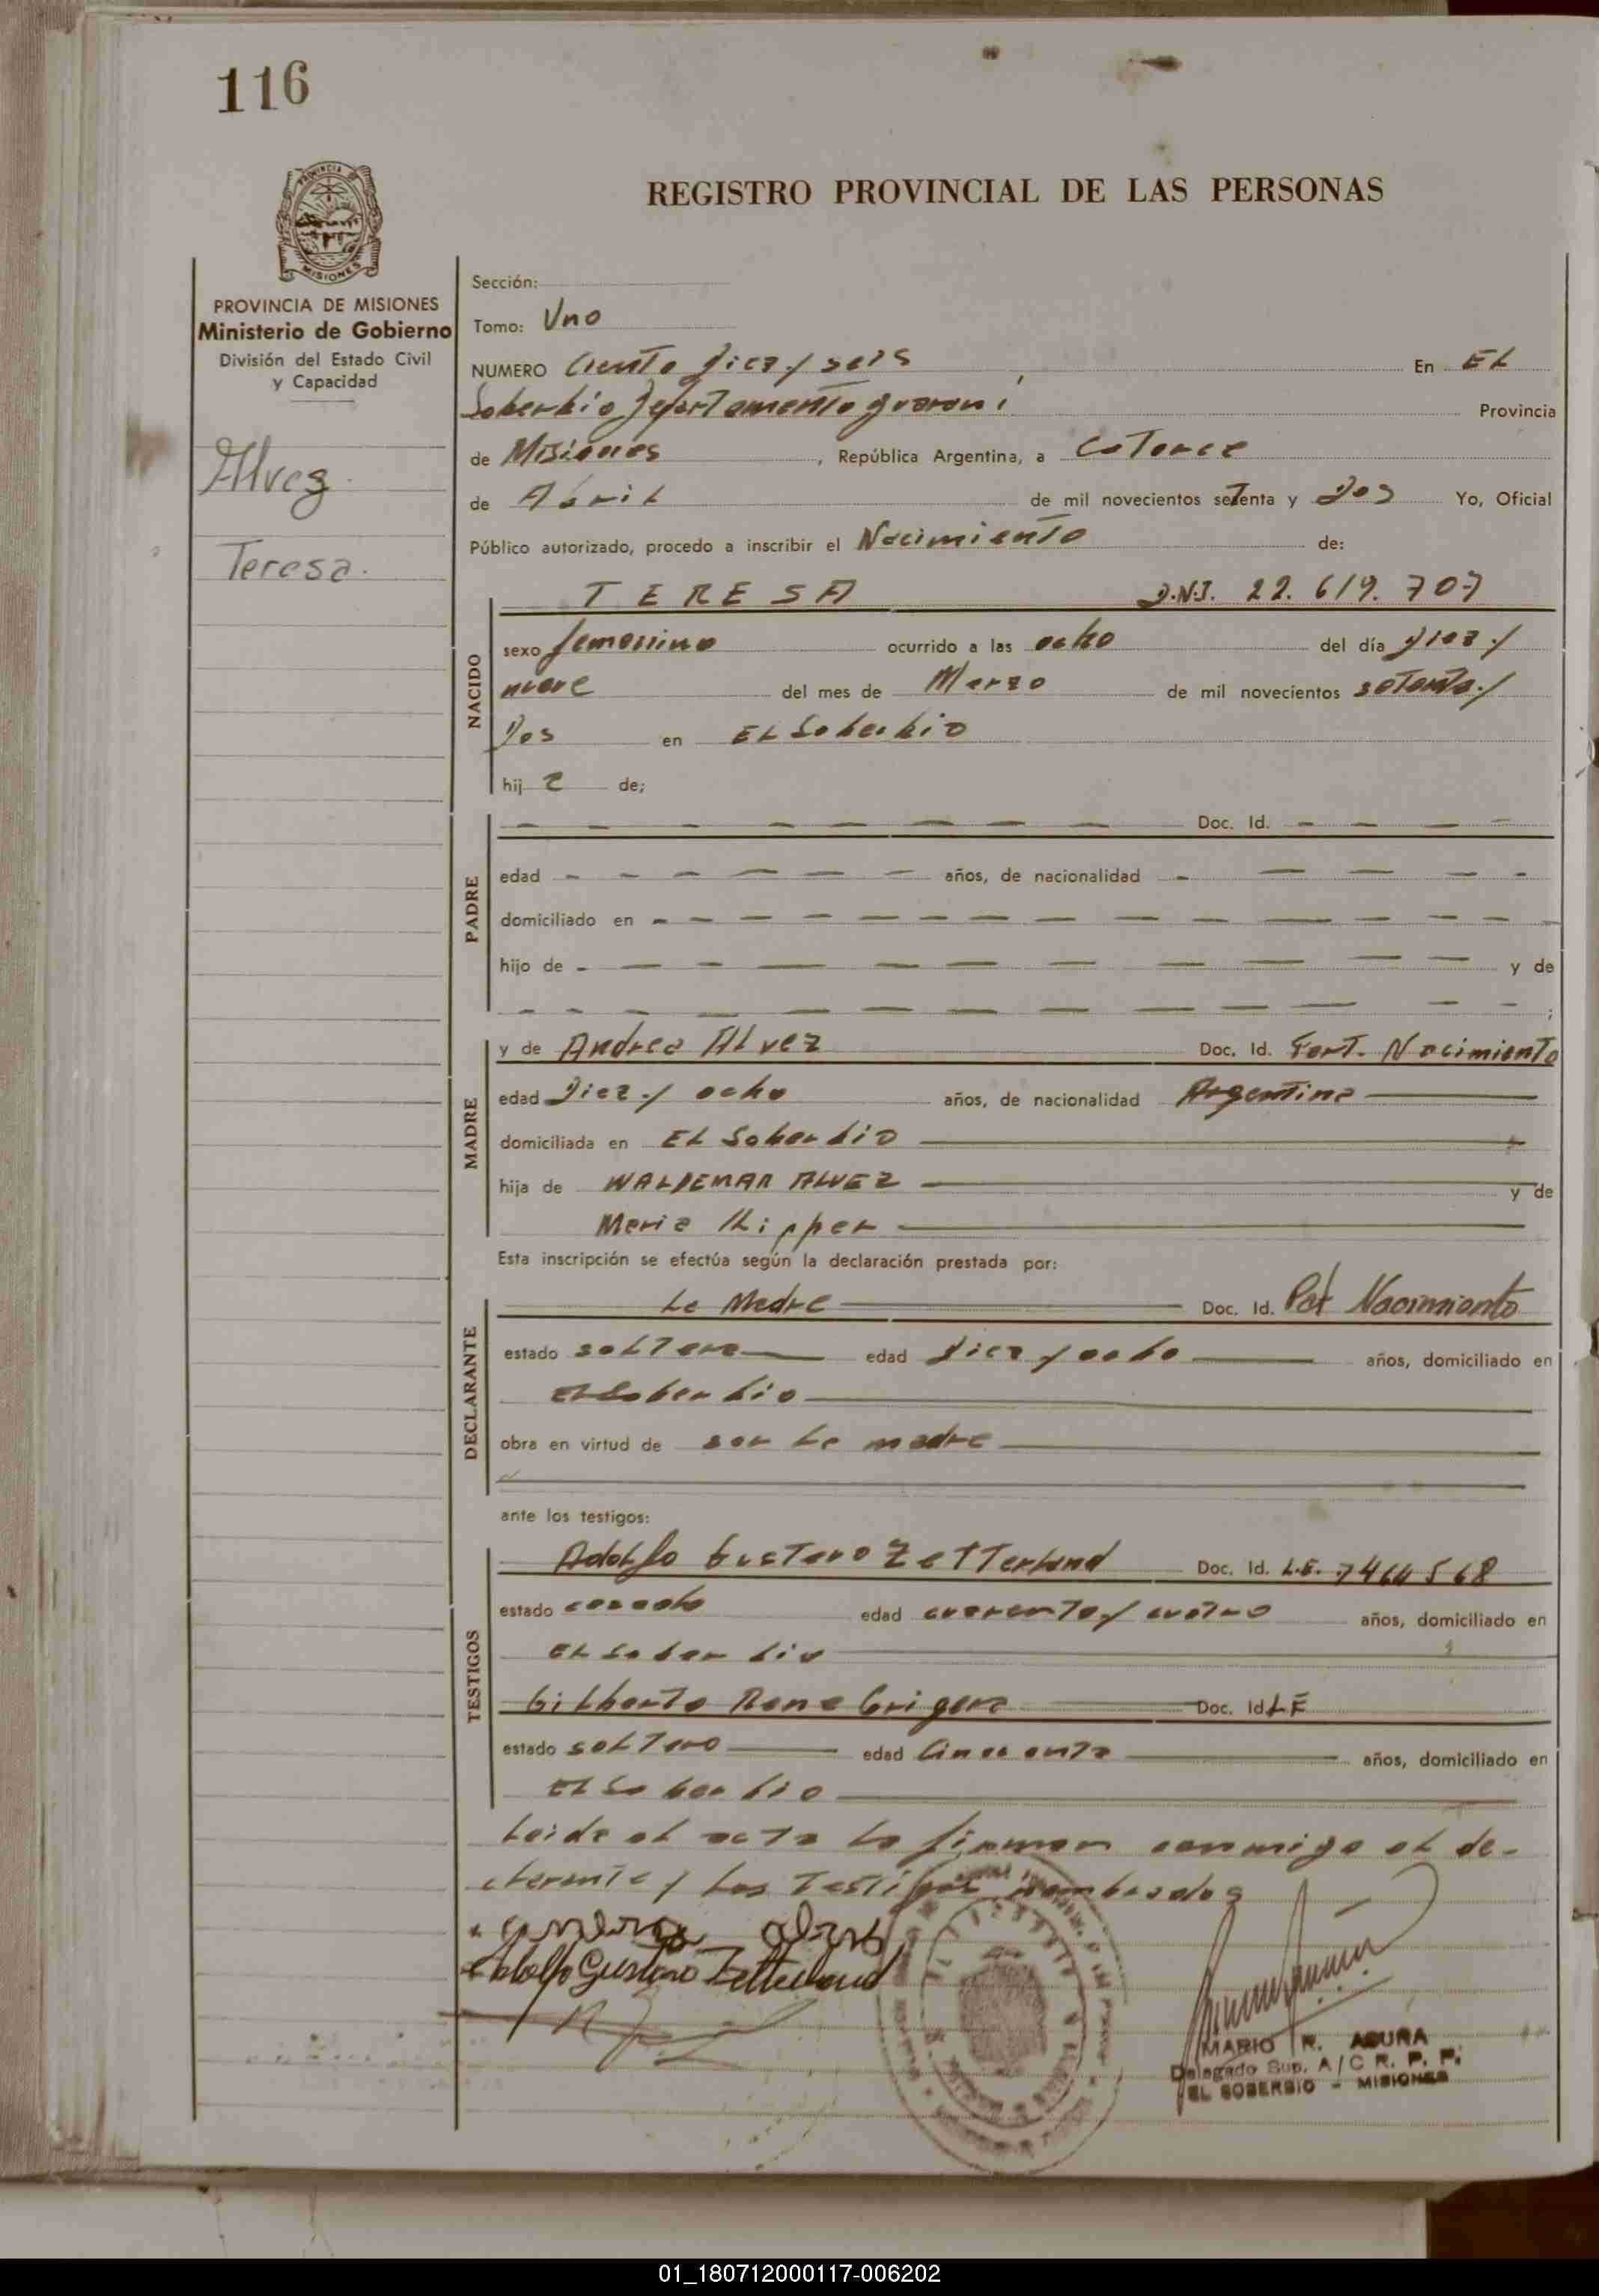 116
REGISTRO PROVINCIAL DE LAS PERSONAS
PROVINCIA DE MISIONES
Ministerio de Gobierno
División del Estado Civil
y Capacidad
Alvez
Teresa.
Sección:
Tomo: Uno
NUMERO Ciento diez y seis En EL
Soberbio Departamento guarani Provincia
de Misiones, República Argentina, a Catorce
de Abril de mil novecientos setenta y Dos Yo, Oficial
Público autorizado, procedo a inscribir el Nacimiento de:
NACIDO
TERESA D.N.I. 22.619.707
sexo femenino ocurrido a las ocho del día diez y
nueve del mes de Marzo de mil novecientos setenta y
Dos en EL Soberbio
hij a de;
PADRE
— — — — — — — — Doc. Id. — — — —
edad — — — — — — años, de nacionalidad — — — — —
domiciliado en — — — — — — — — — — — —
hijo de — — — — — — — — — — y de
— — — — — — — — — — — — ;
MADRE
y de Andrea Alvez Doc. Id. Part. Nacimiento
edad Diez y ocho años, de nacionalidad Argentina
domiciliada en EL Soberbio
hija de WALDEMAR ALVEZ y de
Maria Kipper
Esta inscripción se efectúa según la declaración prestada por:
DECLARANTE
La Madre Doc. Id. Nacimiento
estado soltera edad diez y ocho años, domiciliado en
El Soberbio
obra en virtud de ser la madre
ante los testigos:
TESTIGOS
Adolfo Gustavo Zetterlund Doc. Id. L.E. 7464568
estado casado edad cuarenta y cuatro años, domiciliado en
EL Soberbio
Gilberto Rene Doc. Id. LE
estado soltero edad Cincuenta años, domiciliado en
El Soberbio
Leida el acta la firman conmigo el de-
clarante y los Testigos nombrados
Adolfo Gustavo Zetterlund
MARIO R. ACUÑA
Delegado Sup. A/C R. P. P.
EL SOBERBIO - MISIONES
01_180712000117-006202